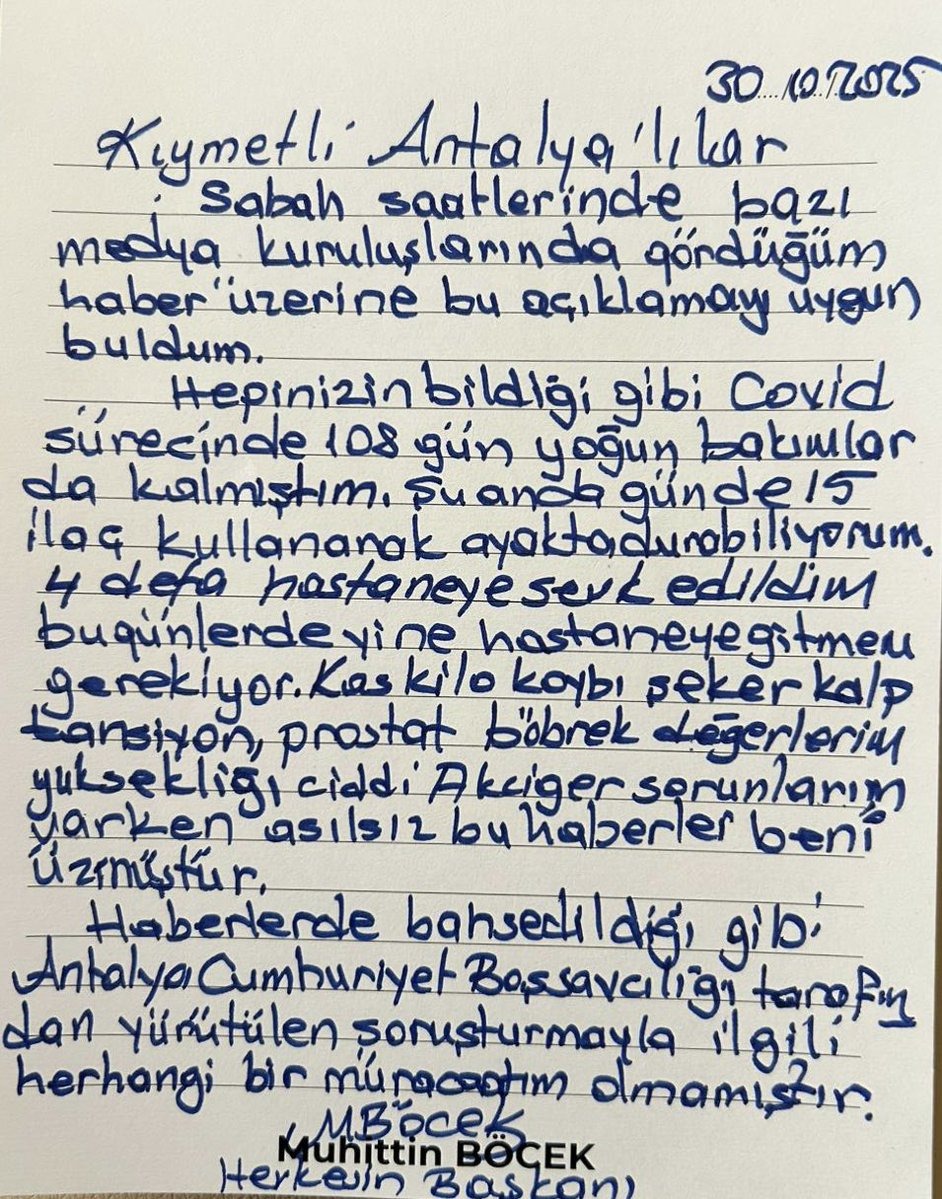 30.10.2025
Kıymetli Antalya'lılar
Sabah saatlerinde bazı
medya kuruluşlarında gördüğüm
haber üzerine bu açıklamayı uygun
buldum.
Hepinizin bildiği gibi Covid
sürecinde 108 gün yoğun bakımlar
da kalmıştım. Şu anda günde 15
ilaç kullanarak ayakta durabiliyorum.
4 defa hastaneye sevk edildim
bugünlerde yine hastaneye gitmem
gerekiyor. Kas kilo kaybı şeker kalp
tansiyon, prostat böbrek değerlerim
yüksekliği ciddi Akciger sorunlarım
varken asılsız bu haberler beni
üzmüştür.
Haberlerde bahsedildiği gibi
Antalya Cumhuriyet Başsavcılığı tarafın
dan yürütülen soruşturmayla ilgili
herhangi bir müracaatım olmamıştır.
M.Böcek
Muhittin BÖCEK
Herkesin Başkanı